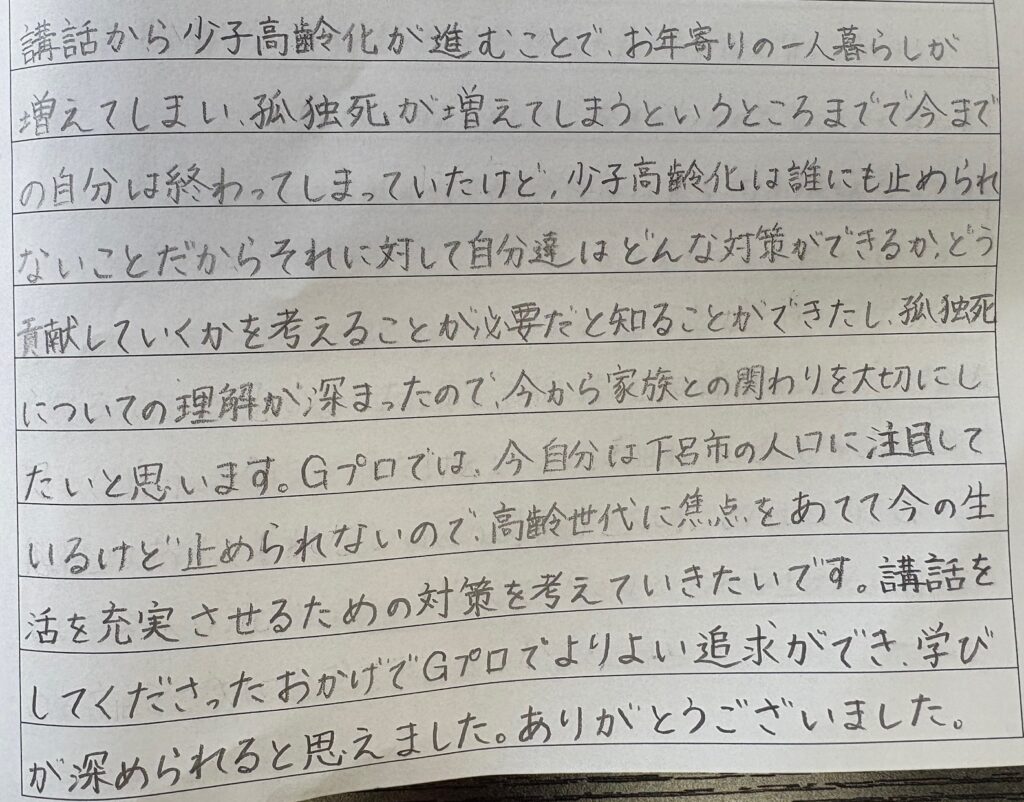 講話から少子高齢化が進むことで、お年寄りの一人暮らしが
増えてしまい、孤独死が増えてしまうというところまでで今まで
の自分は終わってしまっていたけど、少子高齢化は誰にも止められ
ないことだからそれに対して自分達はどんな対策ができるか、どう
貢献していくかを考えることが必要だと知ることができたし、孤独死
についての理解が深まったので、今から家族との関わりを大切にし
たいと思います。Gプロでは、今自分は下呂市の人口に注目して
いるけど止められないので、高齢世代に焦点をあてて今の生
活を充実させるための対策を考えていきたいです。講話を
してくださったおかげでGプロでよりよい追求ができ、学び
が深められると思えました。ありがとうございました。